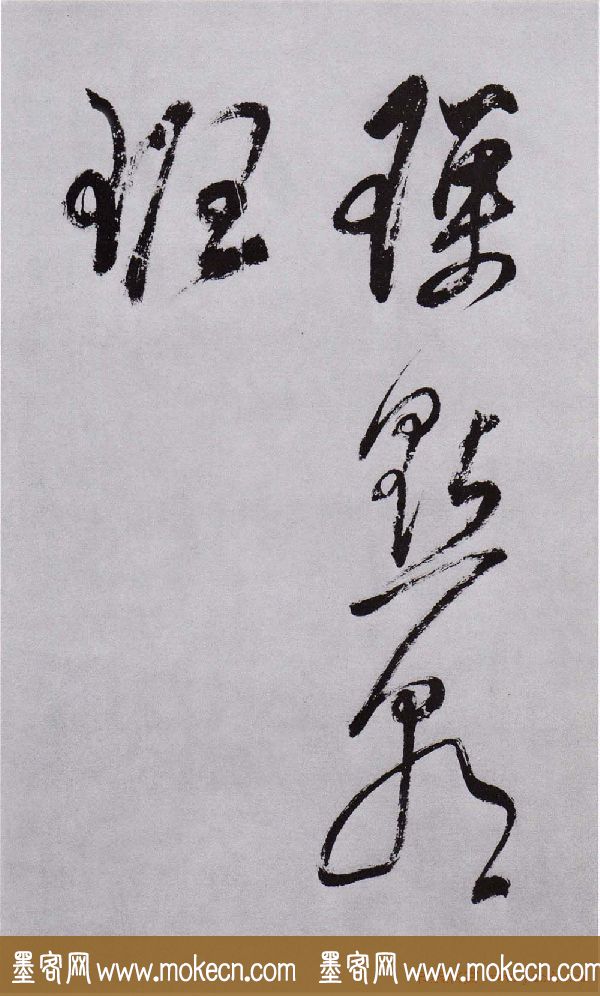 璅點朝
班
墨客网 www.mokecn.com 墨客网 www.mokecn.com